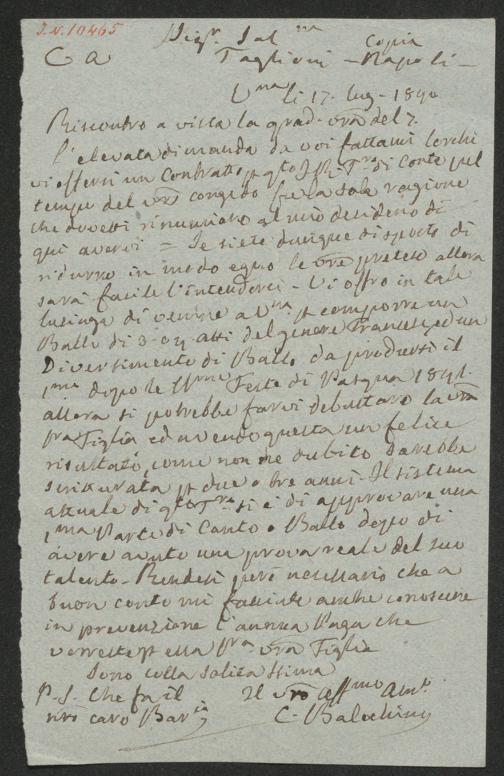 I.N. 10465
Sigr. Sal
Copia
C a Taglioni - Napoli -
li 17. lug. 1840
Riscontro a vista la grad. vra del 7.
L'elevata dimanda da voi fattami lorchè
vi offersi un Contratto pr qto I. R. Tro di Corte pel
tempo del vro congedo fu la sola ragione
che dovetti rinunciare al mio desiderio di
qui avervi = Se siete dunque disposto di
ridurre in modo equo le vre pretese allora
sarà facile l'intenderci - Vi offro in tale
lusinga di venire a Vna pr comporre un
Ballo di 3. o 4 atti del genere Francese, ed un
Divertimento di Ballo da prodursi il
1mo dopo le Feste di Pasqua 1841.
allora si potrebbe farvi debuttare la vra
Figlia ed avendo questa un felice
risultato, come non ne dubito sarebbe
scritturata pr due o tre anni. Il sistema
attuale di qto si è di approvare una
1ma Parte di Canto o Ballo dopo di
avere avuto una prova reale del suo
talento - Rendesi però necessario che a
buon conto mi facciate anche conoscere
in prevenzione l'annua Paga che
vorreste pr essa vra Figlia
Sono colla solita stima
P. S. Che fa il Il vro affmo Amo
vro caro Bar C. Balochino